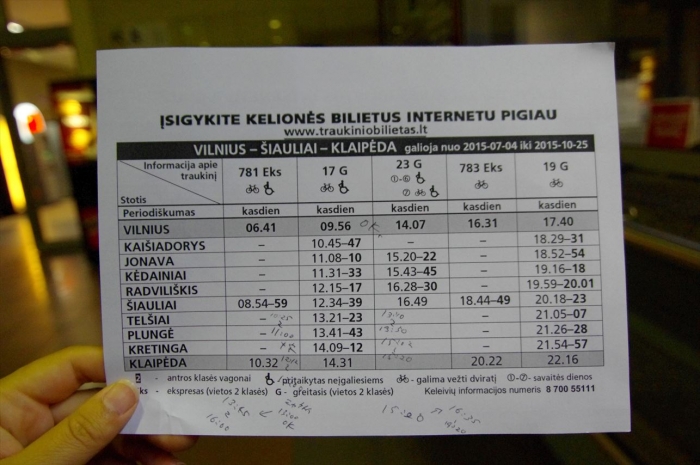 ĮSIGYKITE KELIONĖS BILIETUS INTERNETU PIGIAU
www.traukiniobilietas.lt
VILNIUS – ŠIAULIAI – KLAIPĖDA galioja nuo 2015-07-04 iki 2015-10-25
Informacija apie traukinį 781 Eks 17 G 23 G 783 Eks 19 G
①-⑥
⑦
Stotis
Periodiškumas kasdien kasdien kasdien kasdien kasdien
VILNIUS 06.41 09.56 OK 14.07 16.31 17.40
KAIŠIADORYS – 10.45–47 – – 18.29–31
JONAVA – 11.08–10 15.20–22 – 18.52–54
KĖDAINIAI – 11.31–33 15.43–45 – 19.16–18
RADVILIŠKIS – 12.15–17 16.28–30 – 19.59–20.01
ŠIAULIAI 08.54–59 12.34–39 16.49 18.44–49 20.18–23
TELŠIAI – 13.21–23 – 21.05–07
PLUNGĖ – 13.41–43 – 21.26–28
KRETINGA – 14.09–12 – 21.54–57
KLAIPĖDA 10.32 14.31 20.22 22.16
- antros klasės vagonai - pritaikytas neįgaliesiems - galima vežti dviratį ①-⑦- savaitės dienos
ks - ekspresas (vietos 2 klasės) G - greitasis (vietos 2 klasės) Keleivių informacijos numeris 8 700 55111
OK 15:20